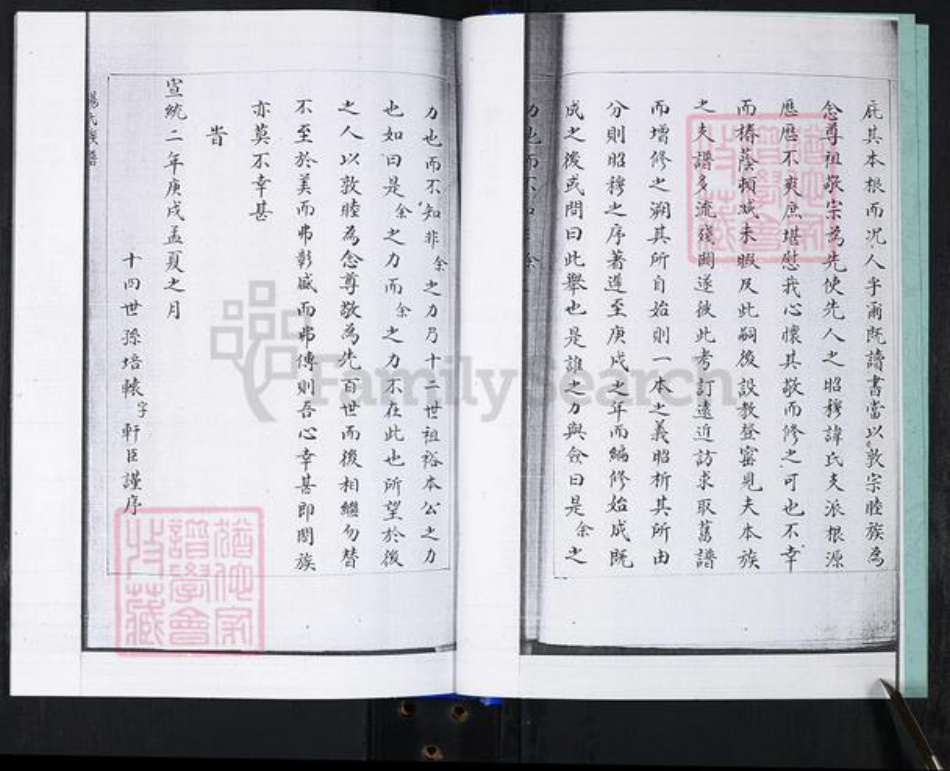 庇其本根而况人乎爾既讀書當以敦宗睦族為
念尊祖敬宗為先使先人之昭穆諱氏支派根源
應應不爽庶堪慰我心懷其敬而修之可也不幸
而椿蔭頓减未暇及此嗣後設教登窑見夫本族
之支譜多流殘闕遂彼此考訂遠近訪求取舊譜
而增修之溯其所自始則一本之義昭析其所由
分則昭穆之序著遵至庚戌之年而編修始成既
成之後或問曰此舉也是誰之力與僉曰是余之
力也而不知非余之力乃十二世祖裕本公之力
也如曰是余之力而余之力不在此也所望於後
之人以敦睦為念尊敬為先百世而後相繼勿替
不至於美而弗彰盛而弗傳則吾心幸甚即閤族
亦莫不幸甚
旹
宣統二年庚戌孟夏之月
十四世孫培轅字軒臣謹序
楊氏族譜
猶他家譜學會收藏
猶他家譜學會收藏
FamilySearch